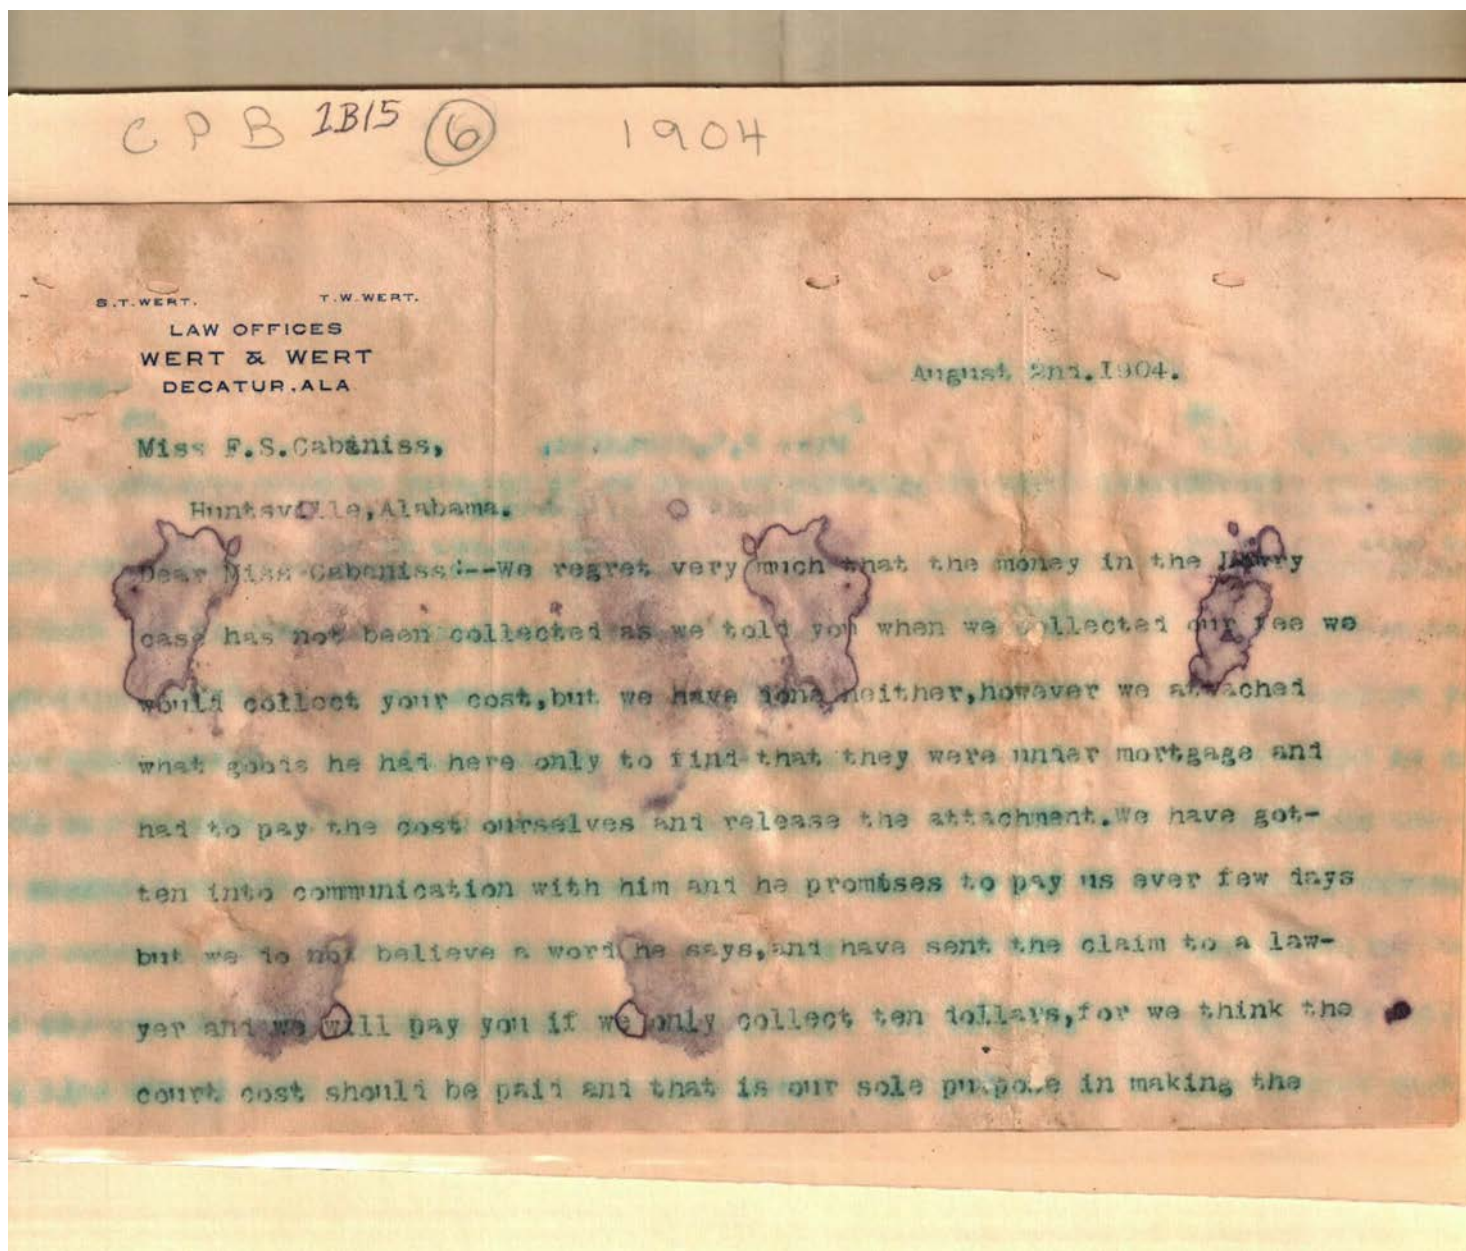 CPB 1B15 6 1904
S.T.WERT. T.W.WERT.
LAW OFFICES
WERT & WERT
DECATUR.ALA
August 2nd.1904.
Miss F.S.Cabaniss,
Huntsville,Alabama.
Dear Miss Cabaniss:--We regret very much that the money in the
case has not been collected as we told you when we collected our fee we
would collect your cost,but we have done neither,however we attached
what goods he had here only to find that they were under mortgage and
had to pay the cost ourselves and release the attachment.We have got-
ten into communication with him and he promises to pay us ever few days
but we do not believe a word he says,and have sent the claim to a law-
yer and we will pay you if we only collect ten dollars,for we think the
court cost should be paid and that is our sole purpose in making the